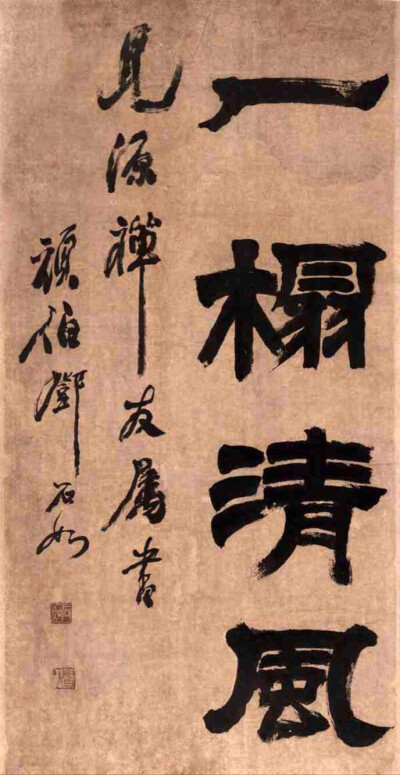 一榻清風
見源禪友屬書
頑伯鄧石如